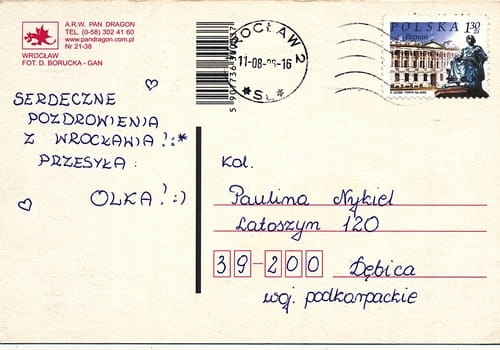 A.R.W. PAN DRAGON
TEL. (0-58) 302 41 60
www.pandragon.com.pl
Nr 21-38
WROCŁAW
FOT. D. BORUCKA - GAN
WROCŁAW 2
POLSKA 1,30 zł
Poznań
SERDECZNE
POZDROWIENIA
Z WROCŁAWIA!:*
PRZESYŁA:
OLKA! :)
Kol.
Paulina Nykiel
Latoszyn 120
39-200 Dębica
woj. podkarpackie